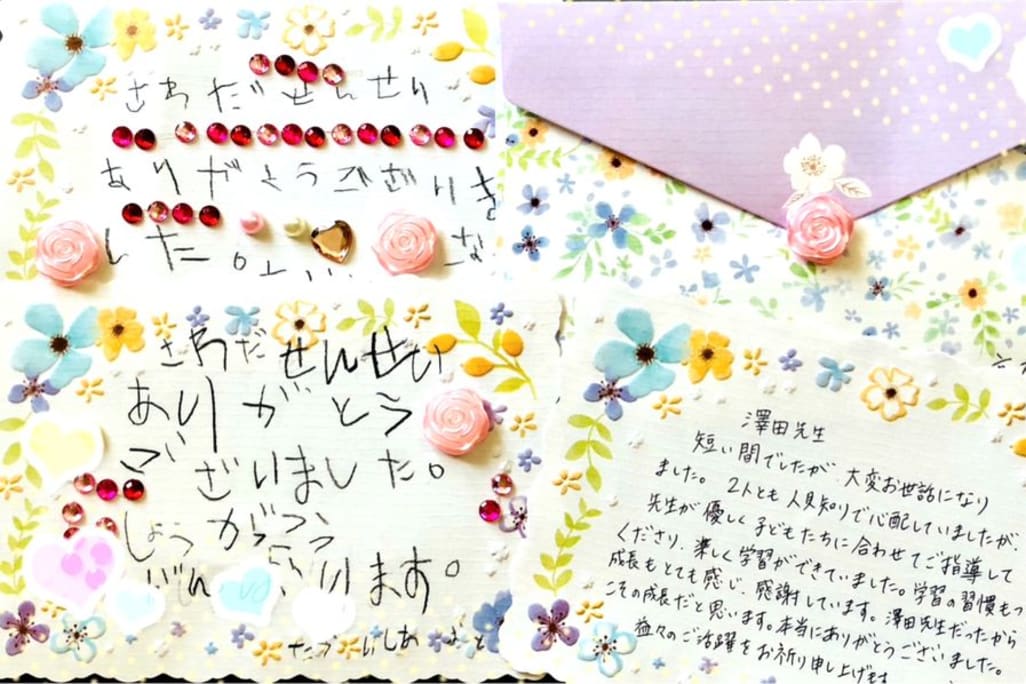 さわだせんせい
ありがとうございま
した。
さわだせんせい
ありがとう
ございました。
しょうがっこう
ります。
澤田先生
短い間でしたが、大変お世話になり
ました。2人とも人見知りで心配していましたが、
先生が優しく子どもたちに合わせてご指導して
くださり、楽しく学習ができていました。学習の習慣もつ
成長もとても感じ、感謝しています。澤田先生だったから
こその成長だと思います。本当にありがとうございました。
益々のご活躍をお祈り申し上げます